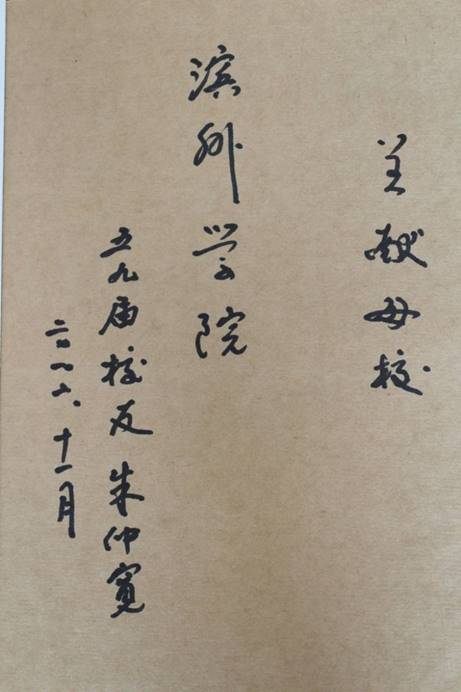 呈献母校
滨外学院
五九届校友 朱仲宽
二〇一六.十一月